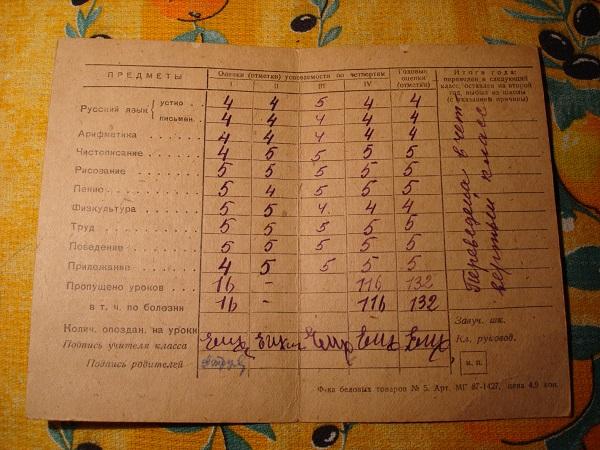 ПРЕДМЕТЫ
Оценки (отметки) успеваемости по четвертям
I II III IV
Годовые оценки (отметки)
Итоги года:
переведен в следующий
класс, оставлен на второй
год, выбыл из школы
(с указанием причины)
Русский язык { устно . 4 4 5 4 4
письмен. 4 4 4 4 4
Арифметика . . . . . . 4 4 4 4 4
Чистописание . . . . . 4 5 5 5 5
Рисование . . . . . . 5 5 5 5 5
Пение . . . . . . . 5 4 5 5 5
Физкультура . . . . . . 5 5 4 4 4
Труд . . . . . . . . 5 5 5 5 5
Поведение . . . . . . 5 5 5 5 5
Прилежание . . . . . . 4 5 5 5 5
Пропущено уроков 16 - 116 132
в т. ч. по болезни 16 - 116 132
Колич. опоздан. на уроки
Подпись учителя класса
Подпись родителей
Переведена в чет
вертый класс
Завуч. шк.
Кл. руковод.
Ф-ка беловых товаров № 5. Арт. МГ 87-1427, цена 4,9 коп.